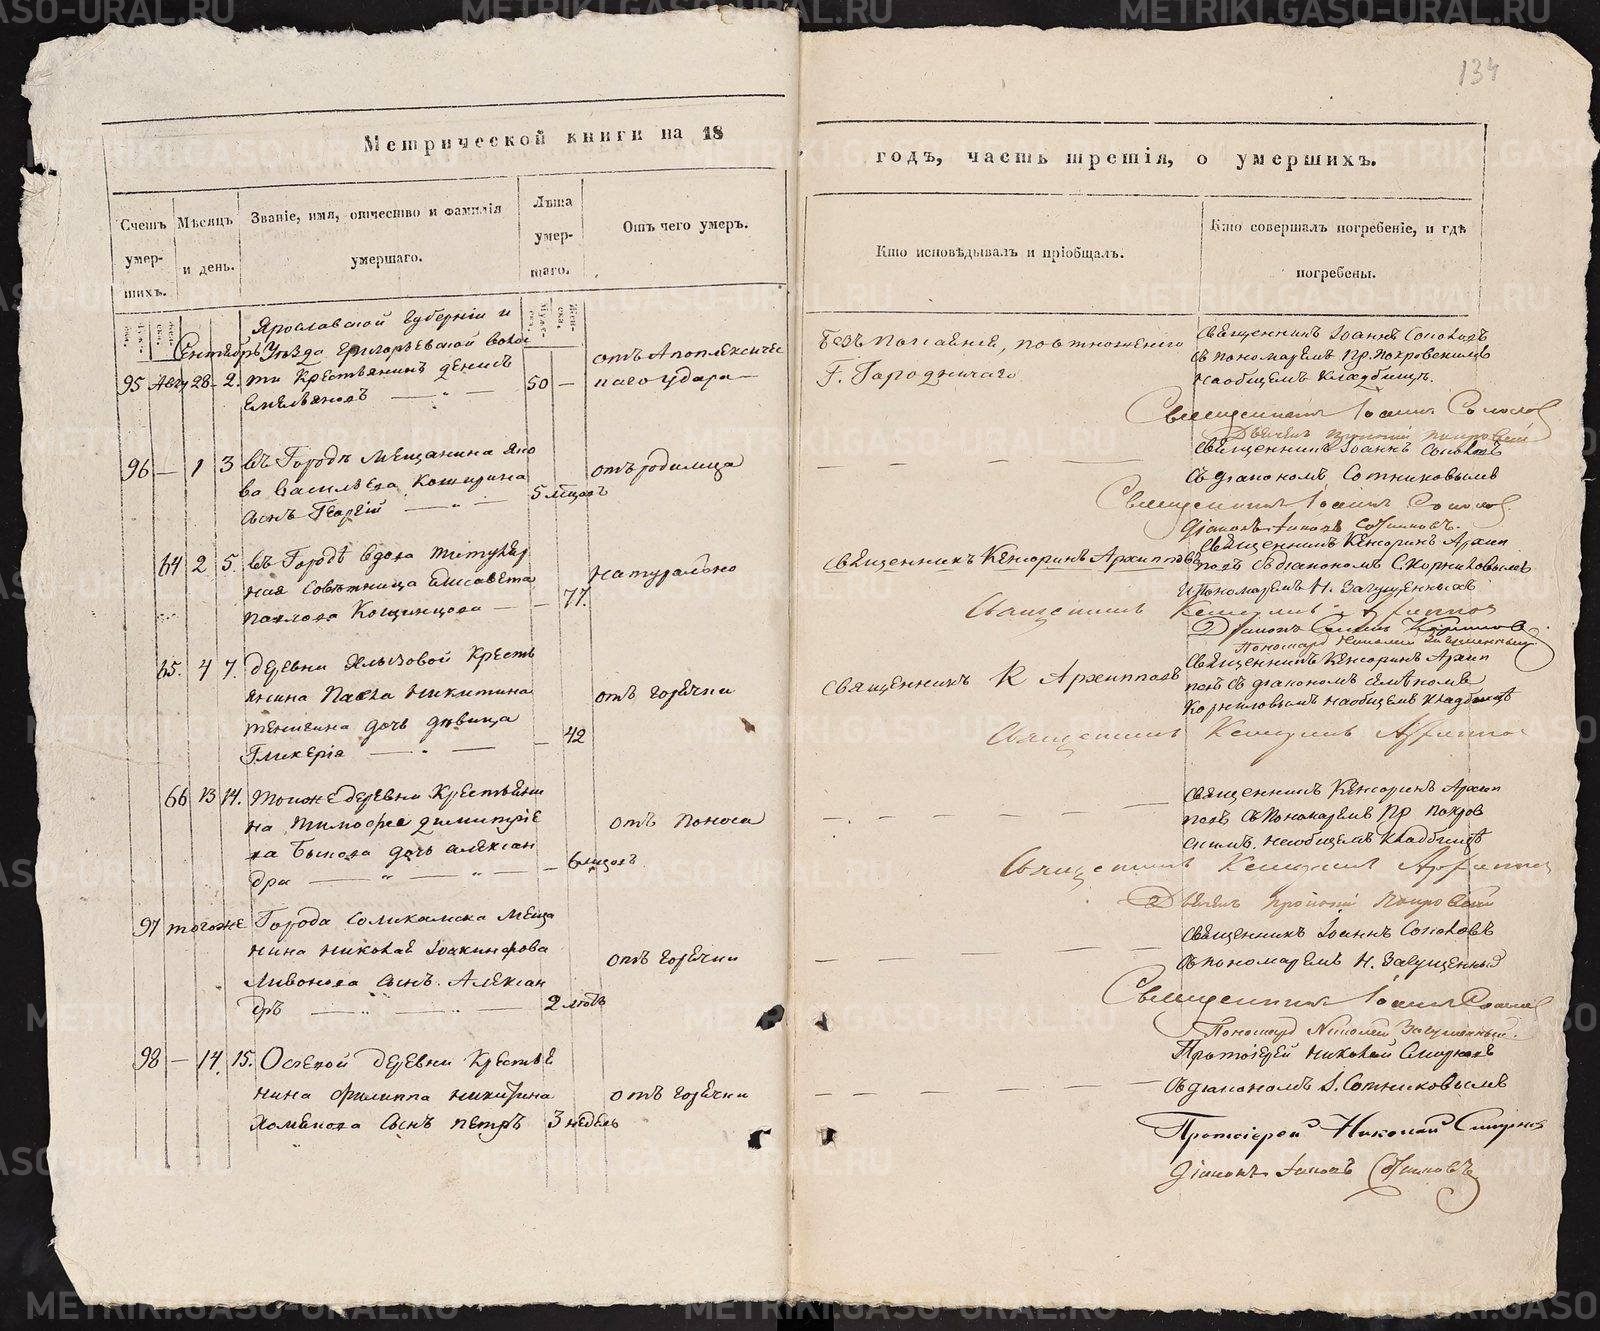 134
Метрической книги на 18
годъ, часть третія, о умершихъ.
Счетъ умершихъ.
Мѣсяцъ и день.
Званіе, имя, отчество и фамилія умершаго.
Лѣта умершаго.
Отъ чего умеръ.
Кто исповѣдывалъ и пріобщалъ.
Кто совершалъ погребеніе, и гдѣ погребены.
Ярославской губерніи и
Сентябрь Уѣзда Григорьевской воло
95 Авгу 28 - 2. сти Крестьянинъ Денисъ 50 —
Емельяновъ — „ —
отъ Апоплексичес
каго удара —
Безъ покаянія, по отношенію
Г. Городничаго
Священникъ Іоаннъ Соколовъ
съ пономаремъ Пр. Покровскимъ
на общемъ кладбищѣ.
Священникъ Іоаннъ Соколов
96 — 1 3 въ Городѣ Мещанина Яко
ва Васильева Кошкина
сынъ Георгій — „ — 5 мѣсяцовъ
отъ родимца
Священникъ Іоаннъ Соколовъ
съ діакономъ Сотниковымъ
Священникъ Іоаннъ Соколов
Діаконъ Іаковъ Сотниковъ.
64 2 5. въ Городѣ вдова титуляр
ная Совѣтница Елисавета
Павлова — — 77.
натурально
Священникъ Кенсоринъ Архипповъ
Священникъ Кенсоринъ Архип
повъ съ діакономъ С. Корниловымъ
и Пономаремъ Н. Загущенныхъ
65. 4 7. деревни Крестъ
янина Павла Никитина
дочь дѣвица
Гликерія — „ — — 42
отъ горячки
Священникъ К Архипповъ
Священникъ Кенсоринъ Архип
повъ съ діакономъ Семеномъ
Корниловымъ на общемъ кладбищѣ
66 13 14. тойже деревни Крестьяни
на Тимофея Димитріе
ва Быкова дочь Алексан
дра — „ — „ — — 6 мѣсяцовъ
отъ поноса
Священникъ Кенсоринъ Архип
повъ съ Пономаремъ Пр Покров
скимъ. на общемъ кладбищѣ
97 тогоже Города Соликамска Меща
нина Николая Іоакинфова
Ливонова сынъ Алексан
дръ — „ — „ — 2 лѣтъ
отъ горячки
Священникъ Іоаннъ Соколовъ
съ пономаремъ Н. Загущенный
Священникъ Іоаннъ Соколов
Пономарь Николай Загущенный.
98 — 14. 15. Осокой деревни Крестья
нина Филиппа Никитина
Хомякова сынъ Петръ 3 недель
отъ горячки
Протоіерей Николай Смирновъ
съ діакономъ І. Сотниковымъ
Протоіерей Николай Смирнов
Діаконъ Іаковъ Сотниковъ
METRIKI.GASO-URAL.RU